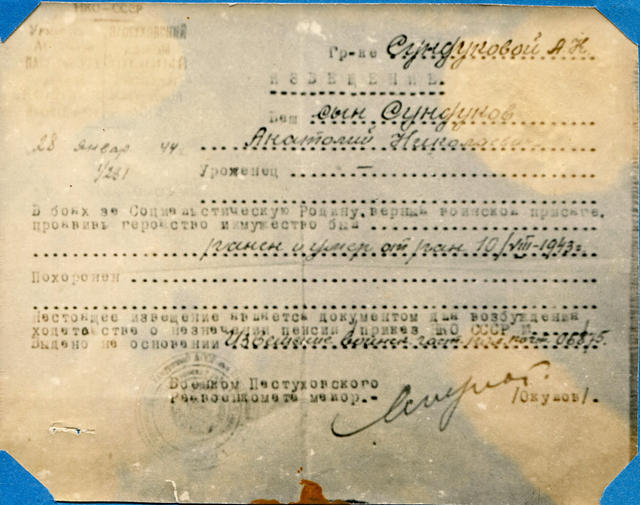 НКО-СССР
Гр-ке Сундуковой А.Н.
ИЗВЕЩЕНИЕ.
Ваш сын Сундуков
28 январ 44г.
Анатолий Николаевич
1/231
Уроженец —
В боях за Социалистическую Родину, верный воинской присяге,
проявив геройство и мужество был
ранен и умер от ран 10/VIII-1943г.
Похоронен
Настоящее извещение является документом для возбуждения
ходатайства о назначении пенсии /приказ НКО СССР
Выдано на основании Извещение 06815.
Военком Пастуховского
Райвоенкомата майор.- /Окулов/.